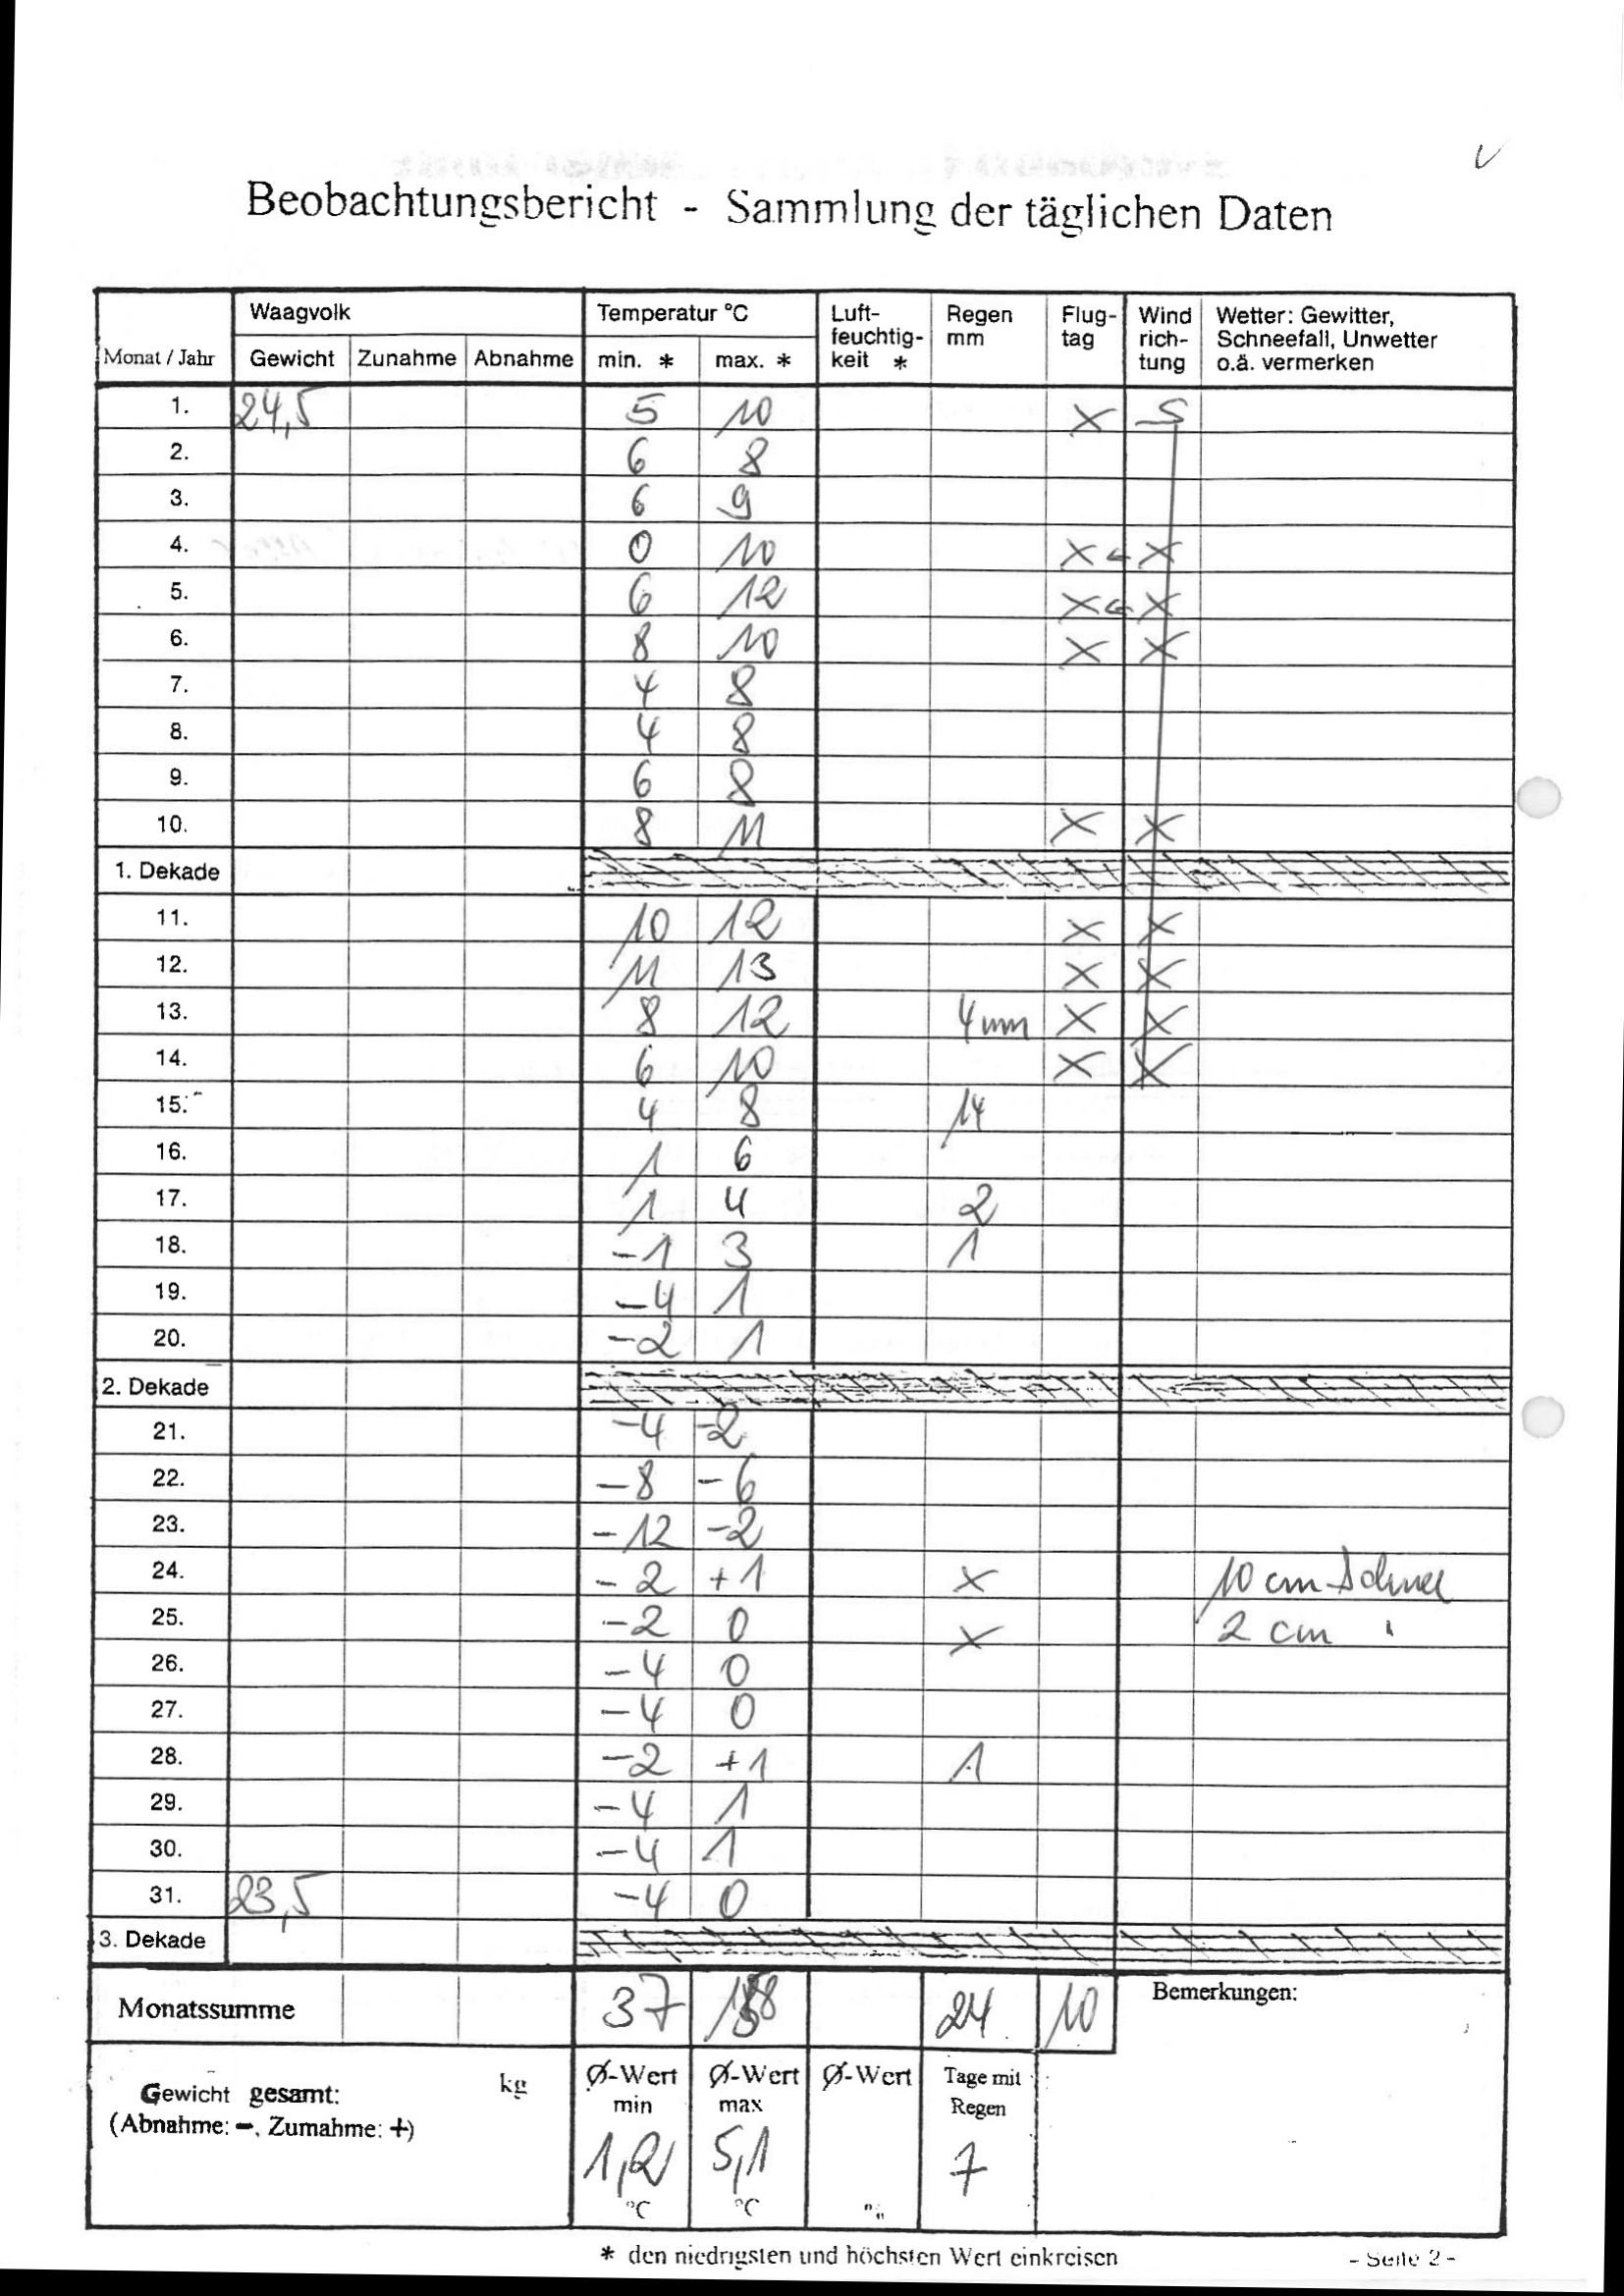 Beobachtungsbericht - Sammlung der täglichen Daten
Monat / Jahr Waagvolk Temperatur °C Luft-feuchtig-keit * Regen mm Flug-tag Wind rich-tung Wetter: Gewitter, Schneefall, Unwetter o.ä. vermerken
Gewicht Zunahme Abnahme min. * max. *
1. 24,5 5 10 X S
2. 6 8
3. 6 9
4. 0 10 X X
5. 6 12 X X
6. 8 10 X X
7. 4 8
8. 4 8
9. 6 8
10. 8 11 X X
1. Dekade
11. 10 12 X X
12. 11 13 X X
13. 8 12 4 mm X X
14. 6 10 X X
15. 4 8 14
16. 1 6
17. 1 4 2
18. -1 3 1
19. -4 1
20. -2 1
2. Dekade
21. -4 -2
22. -8 -6
23. -12 -2
24. -2 +1 X 10 cm Schnee
25. -2 0 X 2 cm
26. -4 0
27. -4 0
28. -2 +1 1
29. -4 1
30. -4 1
31. 23,5 -4 0
3. Dekade
Monatssumme 37 24 10 Bemerkungen:
Gewicht gesamt: kg
(Abnahme: -, Zumahme: +)
Ø-Wert min Ø-Wert max Ø-Wert Tage mit Regen
1,2 5,1 7
°C °C
* den niedrigsten und höchsten Wert einkreisen
- Seite 2 -